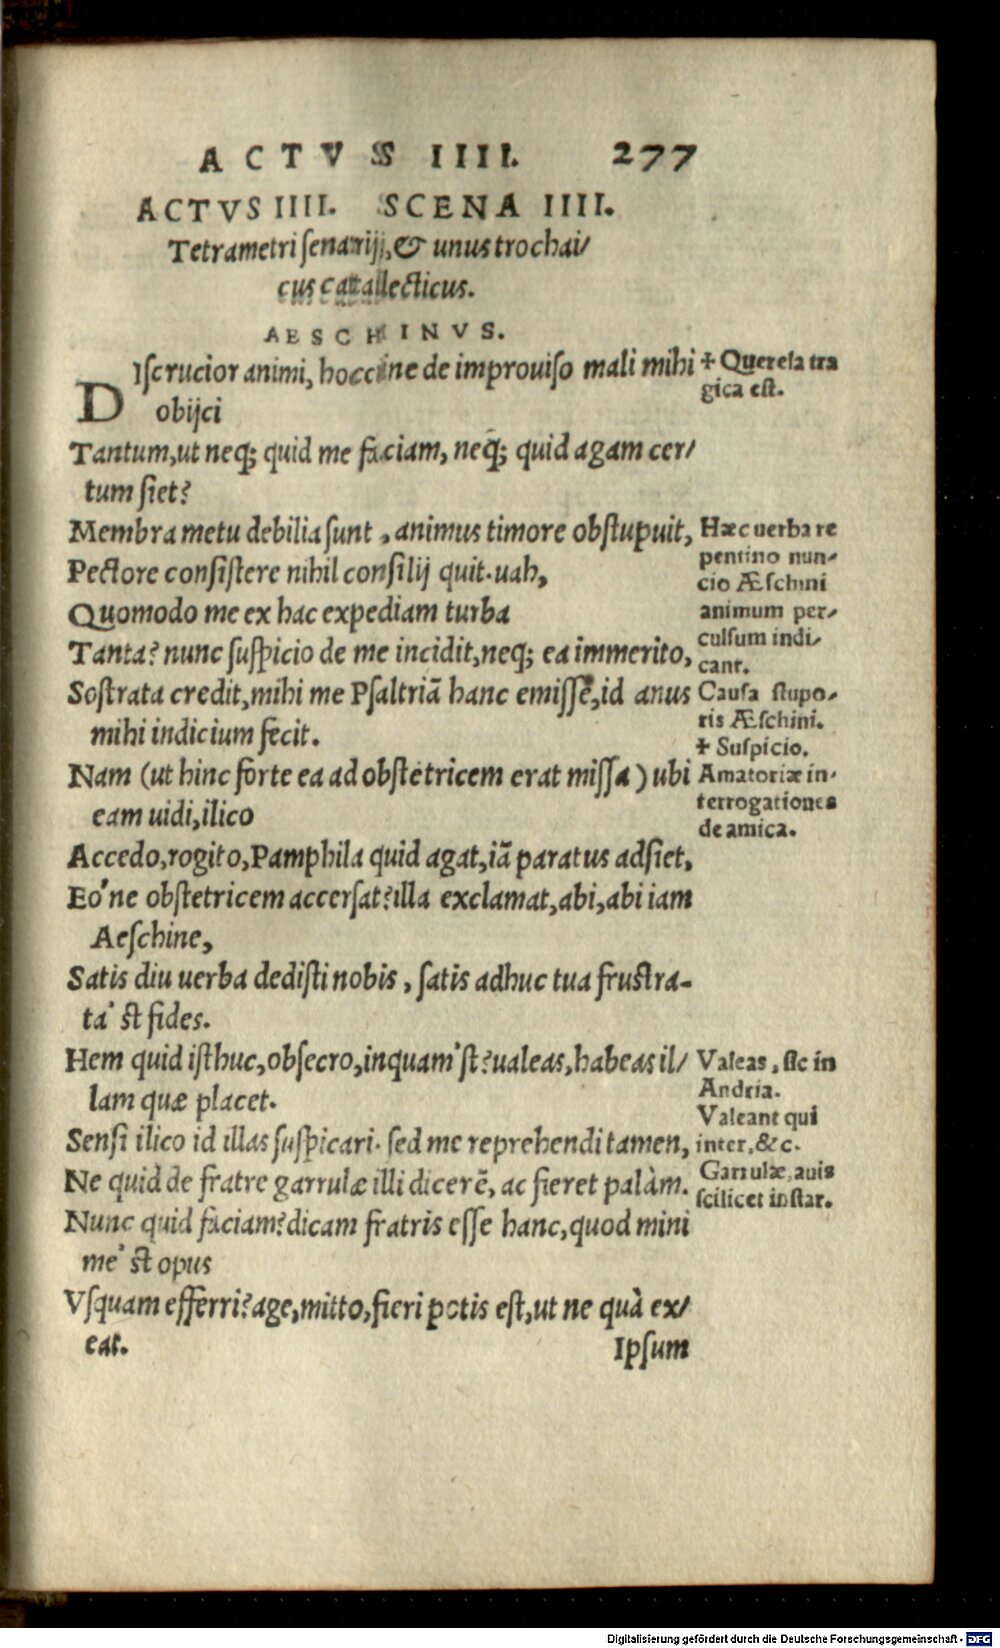 ACTVS IIII. 277
ACTVS IIII. SCENA IIII.
Tetrametri senarij, & unus trochai/
cus catallecticus.
AESCHINVS.
DIscrucior animi, hoccine de improuiso mali mihi
obijci
Tantum, ut neq; quid me faciam, neq̃; quid agam cer/
tum siet?
Membra metu debilia sunt, animus timore obstupuit,
Pectore consistere nihil consilij quit. uah,
Quomodo me ex hac expediam turba
Tanta? nunc suspicio de me incidit, neq; ea immerito,
Sostrata credit, mihi me Psaltriã hanc emisse, id anus
mihi indicium fecit.
Nam (ut hinc forte ea ad obstetricem erat missa) ubi
eam uidi, ilico
Accedo, rogito, Pamphila quid agat, iã paratus adsiet,
Eo'ne obstetricem accersat? illa exclamat, abi, abi iam
Aeschine,
Satis diu uerba dedisti nobis, satis adhuc tua frustra-
ta' st fides.
Hem quid isthuc, obsecro, inquam'st? ualeas, habeas il/
lam quæ placet.
Sensi ilico id illas suspicari. sed me reprehendi tamen,
Ne quid de fratre garrulæ illi dicerẽ, ac fieret palàm.
Nunc quid faciam? dicam fratris esse hanc, quod mini
me' st opus
Vsquam efferri? age, mitto, fieri potis est, ut ne quà ex/
eat.
Ipsum
✝ Querela tra
gica est.
Hæc uerba re
pentino nun-
cio Æschini
animum per-
culsum indi-
cant.
Causa stupo-
ris Æschini.
✝ Suspicio.
Amatoriæ in-
terrogationes
de amica.
Valeas, sic in
Andria.
Valeant qui
inter, &c.
Garrulæ, auis
scilicet instar.
Digitalisierung gefördert durch die Deutsche Forschungsgemeinschaft - DFG